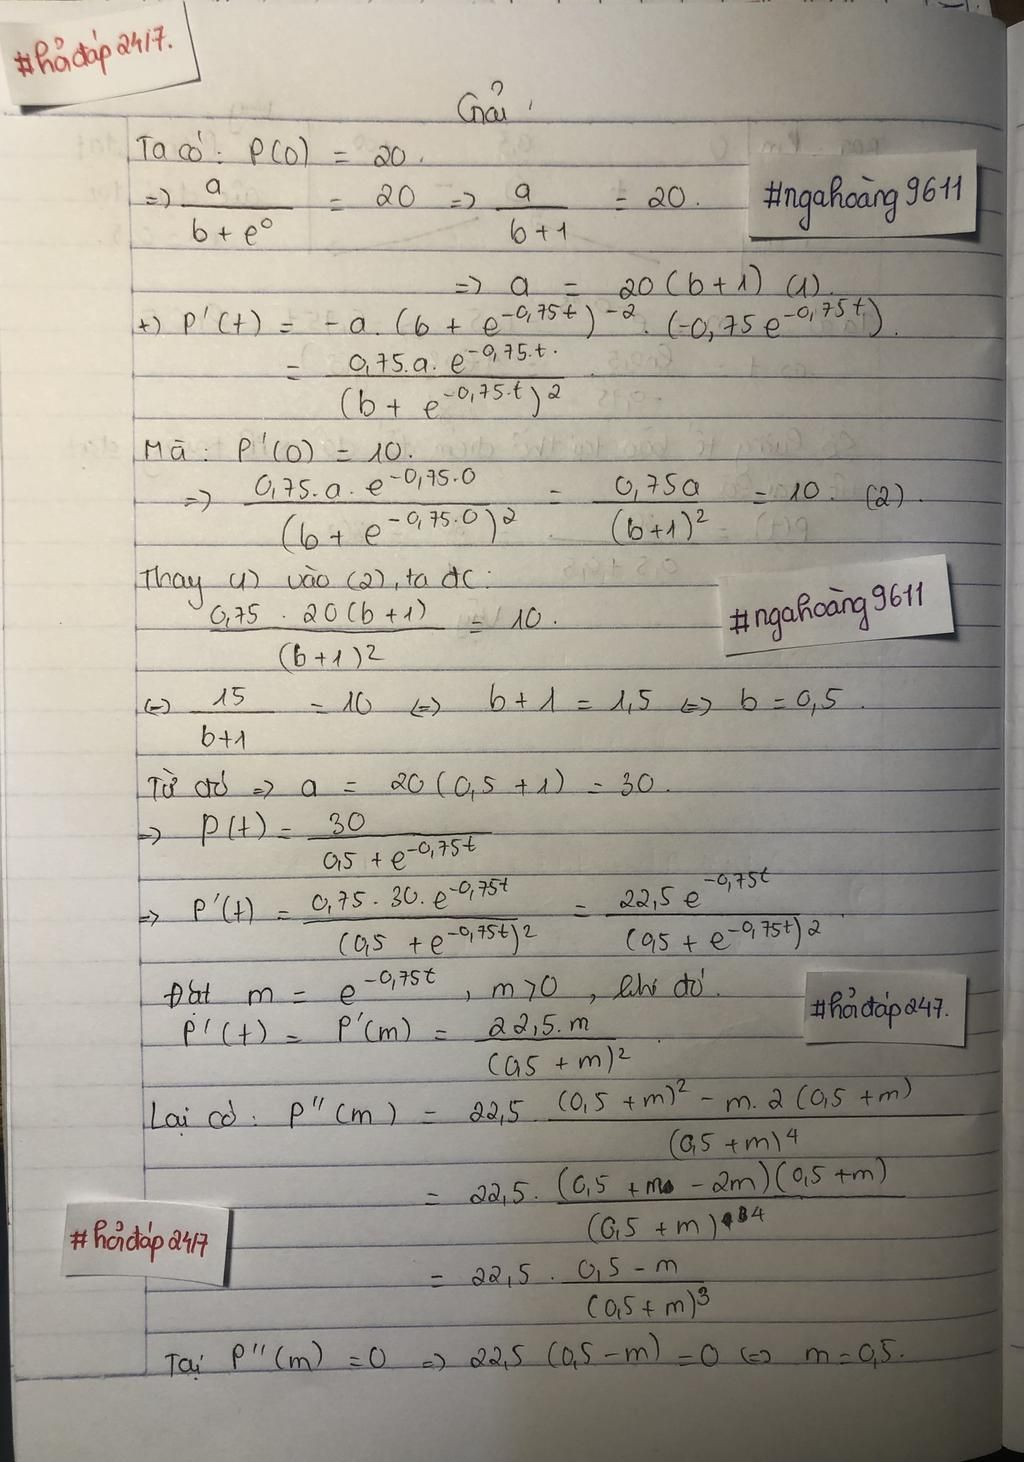 #hỏiđáp 24/7.
Giải
Ta có: P(0) = 20.
=> a/(b + e^0) = 20 => a/(b+1) = 20.
#ngahoàng9611
=> a = 20(b+1) (1).
+) P'(t) = -a.(b + e^(-0,75t))^(-2).(-0,75e^(-0,75t)).
= (0,75.a.e^(-0,75.t))/(b + e^(-0,75.t))^2.
Mà: P'(0) = 10.
=> (0,75.a.e^(-0,75.0))/(b + e^(-0,75.0))^2 = 0,75a/(b+1)^2 = 10. (2).
Thay (1) vào (2), ta đc:
(0,75 . 20(b+1))/(b+1)^2 = 10.
#ngahoàng9611
<=> 15/(b+1) = 10 <=> b+1 = 1,5 <=> b = 0,5.
Từ đó => a = 20(0,5 + 1) = 30.
=> P(t) = 30/(0,5 + e^(-0,75t))
=> P'(t) = (0,75.30.e^(-0,75t))/(0,5 + e^(-0,75t))^2 = (22,5e^(-0,75t))/(0,5 + e^(-0,75t))^2.
Đặt m = e^(-0,75t), m>0, khi đó.
#hỏiđáp247.
P'(t) = P'(m) = (22,5.m)/(0,5 + m)^2.
Lại có: P''(m) = 22,5 ((0,5 + m)^2 - m.2(0,5 + m))/(0,5 + m)^4
= 22,5. ((0,5 + m - 2m)(0,5 + m))/(0,5 + m)^4
#hỏiđáp24/7
= 22,5 . (0,5 - m)/(0,5 + m)^3
Tại P''(m) = 0 => 22,5 (0,5 - m) = 0 <=> m = 0,5.